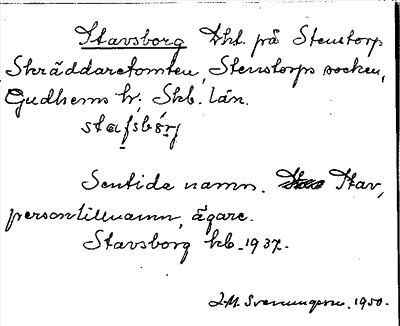 Stavsborg Lht. på Stenstorp
Skräddaretomten, Stenstorps socken,
Gudhems hd. Skb. län.
stafsbórj
Sentida namn. Stav,
persontillnamn, ägare.
Stavsborg kb. 1937.
J.M. Svenungsson. 1950.